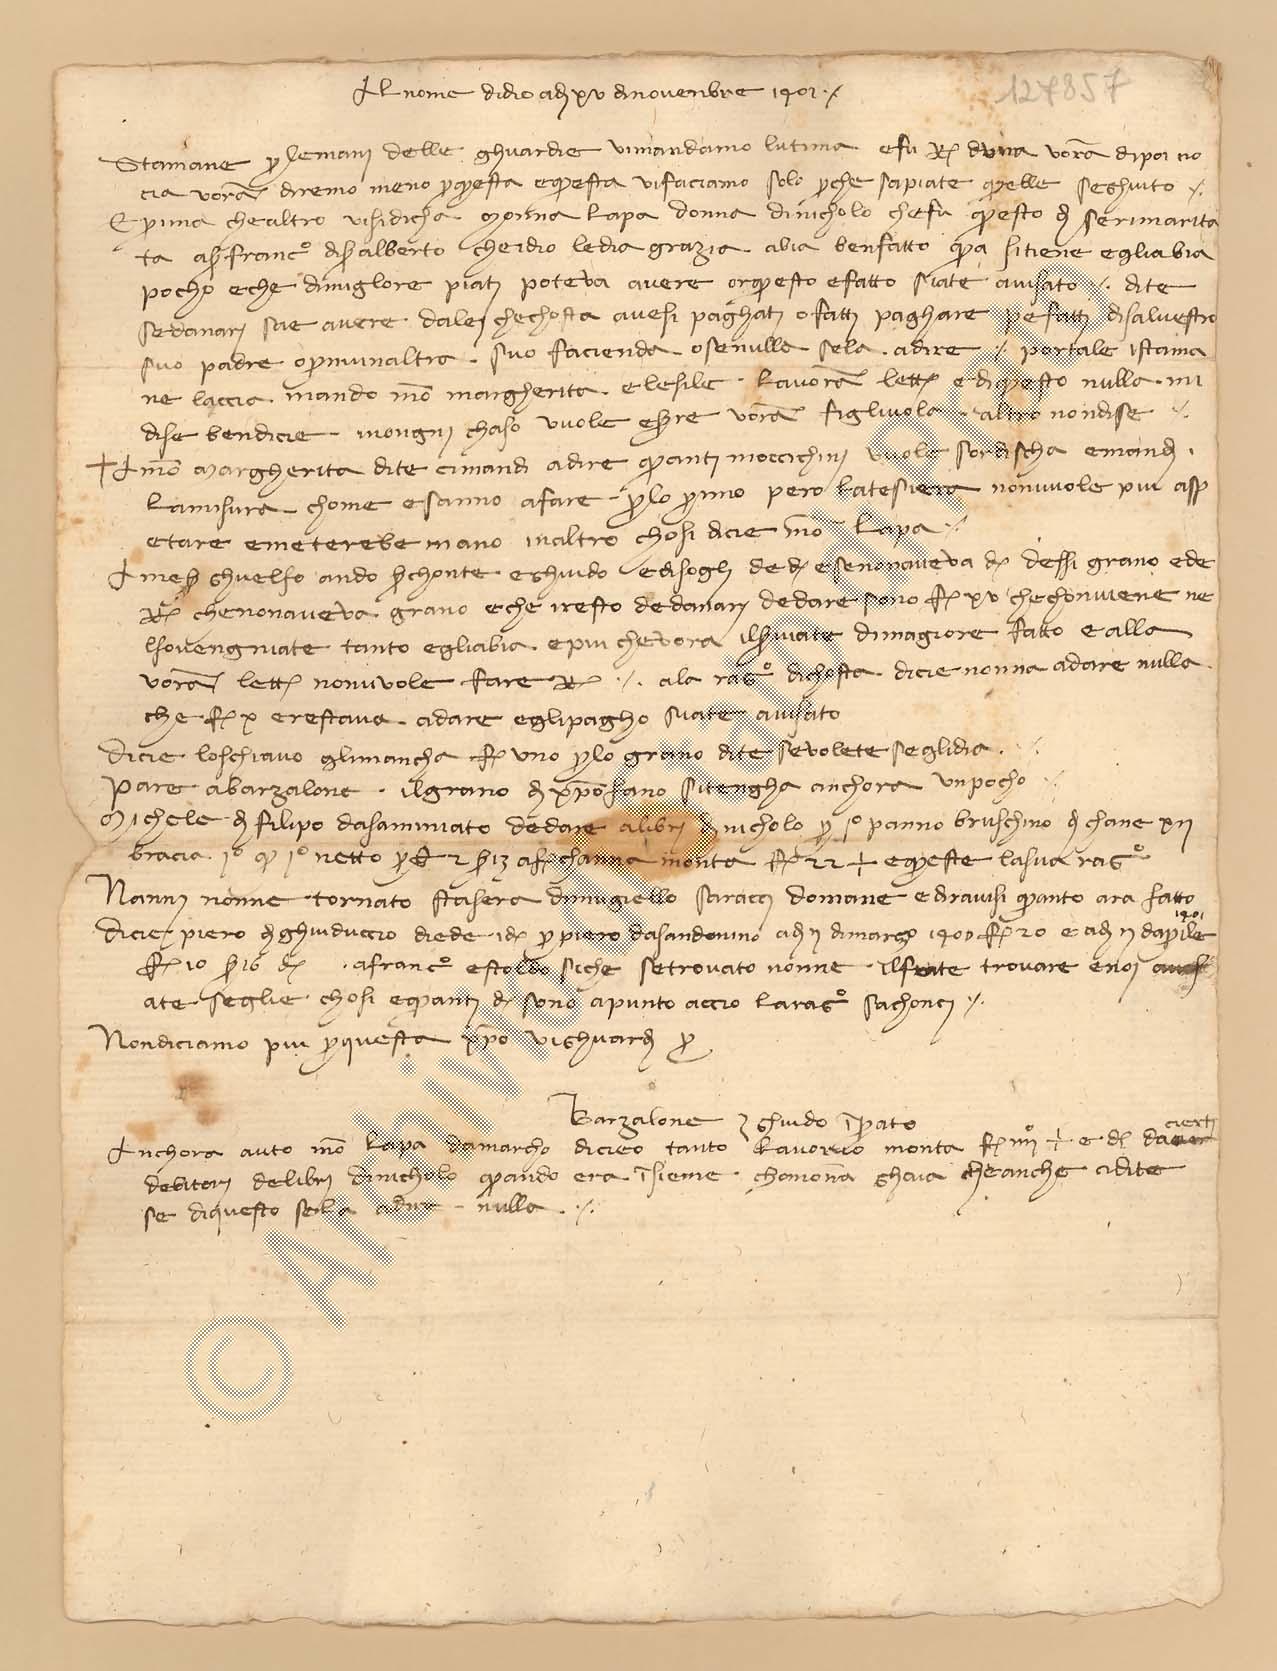 Al nome didio adj xv dinovenbre 1401
127857
Stamane p lemanj delle ghuardie vimandamo lutima efu R d una vora dipoi no
cia vora diremo meno p questa equesta vifaciamo solo p che sapiate quelle seghuito
E prima chealtro visidicha monna Lapa donna dinicholo chefu questo d serimarita
ta a s franco di s alberto cheidio ledia grazia abia benfatto qua sitiene egliabia
pocho eche dimiglore piatj poteva avere orquesto efatto siate avisato dite
sedanarj sae avere dalej chechosta avesi paghatj o fattj paghare pe fattj disalvestro
suo padre o p niunaltra suo facienda osenulla sela adire portale istama
ne laccia mando mo margherita elesile Lavora lett e diquesto nulla mi
dise bendicie inongnj chaso vuole essere vora figliuola altro nondisse
A mo Margherita dite cimandi adire quanti moccichinj vuole sordischa emandi
Lamisura chome esanno afare p lo primo pero Latesiera nonvuole piu asp
etare emeterebe mano inaltro chosi dicie mo Lapa
A mess ghuelfo ando s chonte eghuido edisoglj de d esenonaveva d dessi grano ede
R chenonaveva grano eche iresto dedanarj dedare sono f xv chechonviene ne
lsovengniate tanto egliabia epiu chevora ilserviate dimagiore fatto ealla
vora lett nonvole fare R ala rago dichosta dicie nonna adare nulla
che f x erestava adare eglipagho siate avisato
Dicie loschiavo glimancha f uno p lo grano dite sevolete seglidia
Pare abarzalone ilgrano d xpofano sitengha anchora unpocho
Michele d filipo dasaminiato dedare alibrj d nicholo p 1o panno bruschino d chane xij
bracia 1o q 1o netto p f 2 s 13 a f channa monta f 22 equeste lasua rago
Nannj nonne tornato stasera dimugiello saraccj domane ediravisi quanto ara fatto
Dicie piero d ghuiduccio diede id p piero dasandonino adj ij dimarzo 1400 f 20 e adj ij daprile
1401
f 10 s 16 d afranco estoldo siche setrovato nonne ilfate trovare enoj avis
ate seglie chosi equanti d sono apunto accio larago sachoncj
Nondiciamo piu p questa xpo vighuardj p
Barzalone e ghuido in prato
Anchora auto mo Lapa damarcho dicieo tanto Lavorio monta f e d da
cierti
debitorj delibrj dinicholo quando era insieme chomona ghaia cheanche cidite
se diquesto sella adire nulla
© Archivio